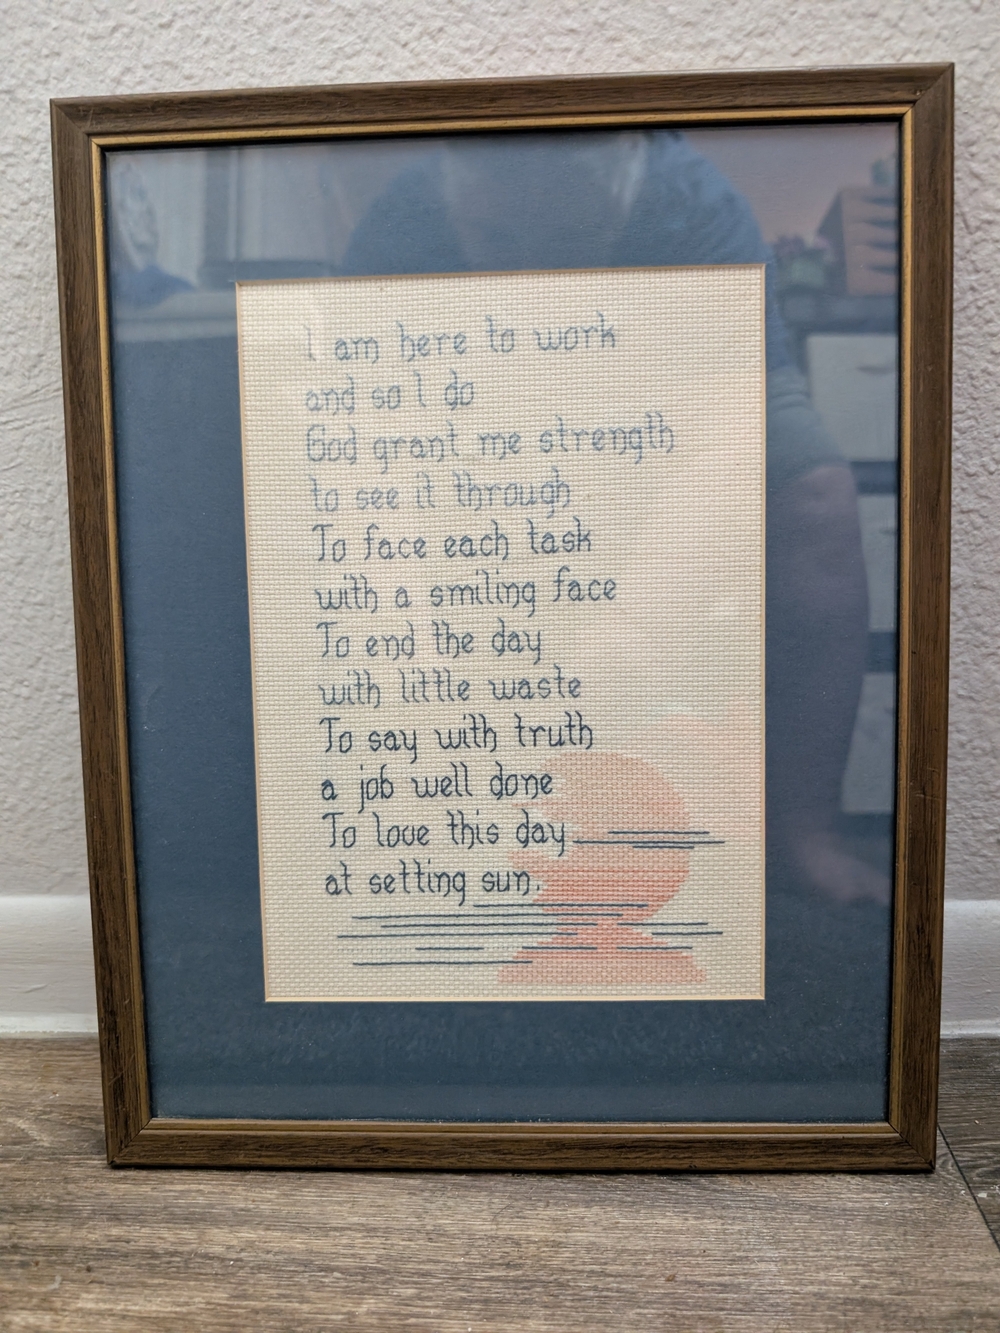 I am here to work
and so I do
God grant me strength
to see it through
To face each task
with a smiling face
To end the day
with little waste
To say with truth
a job well done
To love this day
at setting sun.